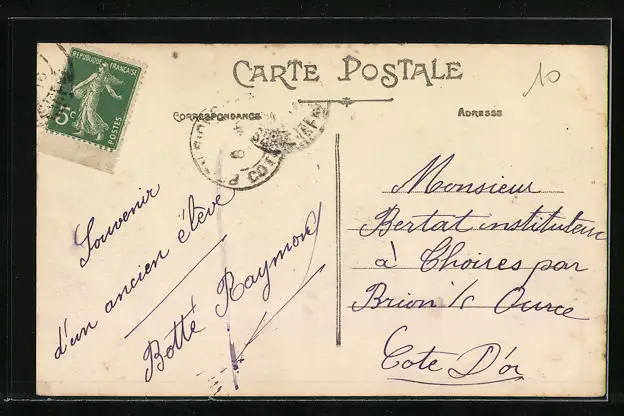 CARTE POSTALE
10
CORRESPONDANCE
ADRESSE
REPUBLIQUE FRANÇAISE
5c
POSTES
COTE
Souvenir
d'un ancien élève
Botté Raymond
Monsieur
Bertat instituteur
à Thoires par
Brion s/ Ource
Cote D'or